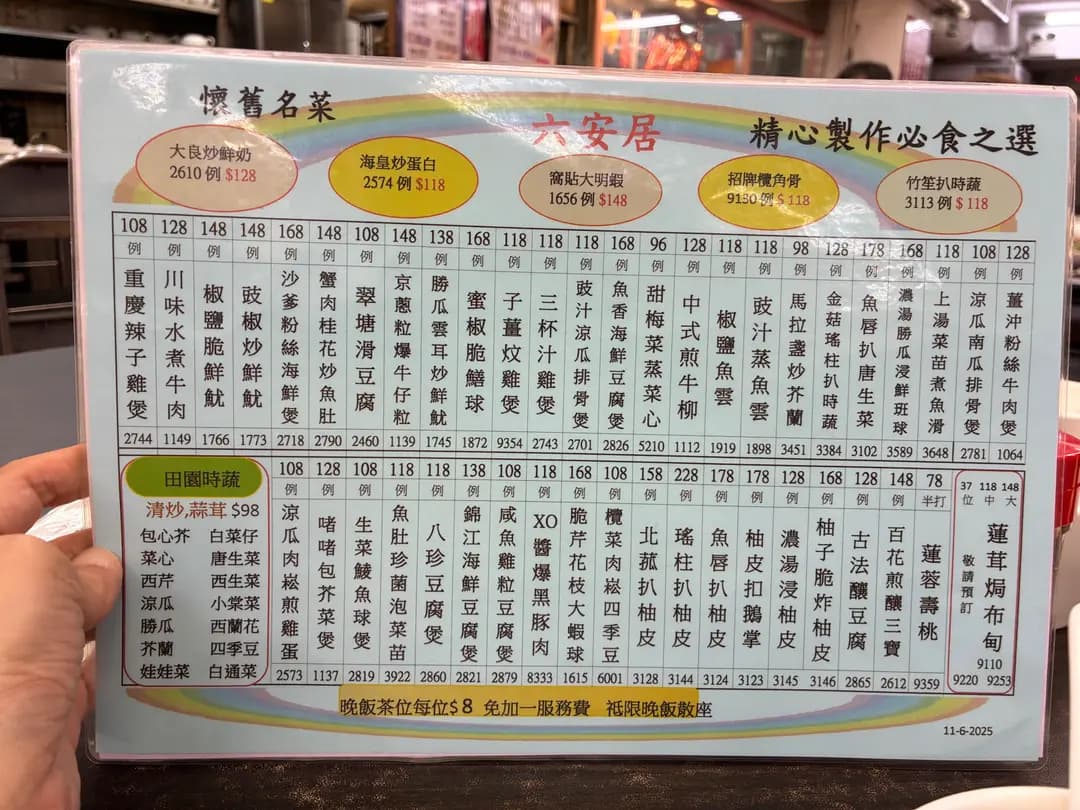 懷舊名菜
六安居
精心製作必食之選
大良炒鮮奶
2610 例 $128
海皇炒蛋白
2574 例 $118
窩貼大明蝦
1656 例 $148
招牌欖角骨
9130 例 $ 118
竹笙扒時蔬
3113 例 $ 118
108 例 重慶辣子雞煲 2744
128 例 川味水煮牛肉 1149
148 例 椒鹽脆鮮魷 1766
148 例 豉椒炒鮮魷 1773
168 例 沙爹粉絲海鮮煲 2718
148 例 蟹肉桂花炒魚肚 2790
108 例 翠塘滑豆腐 2460
148 例 京蔥粒爆牛仔粒 1139
138 例 勝瓜雲耳炒鮮魷 1745
168 例 蜜椒脆鱔球 1872
118 例 子薑炆雞煲 9354
118 例 三杯汁雞煲 2743
118 例 豉汁涼瓜排骨煲 2701
168 例 魚香海鮮豆腐煲 2826
96 例 甜梅菜蒸菜心 5210
128 例 中式煎牛柳 1112
118 例 椒鹽魚雲 1919
118 例 豉汁蒸魚雲 1898
98 例 馬拉盞炒芥蘭 3451
128 例 金菇瑤柱扒時蔬 3384
178 例 魚唇扒唐生菜 3102
168 例 濃湯勝瓜浸鮮班球 3589
118 例 上湯菜苗煮魚滑 3648
108 例 涼瓜南瓜排骨煲 2781
128 例 薑沖粉絲牛肉煲 1064
田園時蔬
清炒,蒜茸 $98
包心芥 白菜仔
菜心 唐生菜
西芹 西生菜
涼瓜 小棠菜
勝瓜 西蘭花
芥蘭 四季豆
娃娃菜 白通菜
108 例 涼瓜肉崧煎雞蛋 2573
128 例 啫啫包芥菜煲 1137
108 例 生菜鯪魚球煲 2819
118 例 魚肚珍菌泡菜苗 3922
118 例 八珍豆腐煲 2860
138 例 錦江海鮮豆腐煲 2821
108 例 咸魚雞粒豆腐煲 2879
118 例 XO醬爆黑豚肉 8333
168 例 脆芹花枝大蝦球 1615
108 例 欖菜肉崧四季豆 6001
158 例 北菰扒柚皮 3128
228 例 瑤柱扒柚皮 3144
178 例 魚唇扒柚皮 3124
178 例 柚皮扣鵝掌 3123
128 例 濃湯浸柚皮 3145
168 例 柚子脆炸柚皮 3146
128 例 古法釀豆腐 2865
148 例 百花煎釀三寶 2612
78 半打 蓮蓉壽桃 9359
37 118 148
位 中 大
蓮茸焗布甸
敬請預訂
9110
9220 9253
晚飯茶位每位$ 8 免加一服務費 祗限晚飯散座
11-6-2025